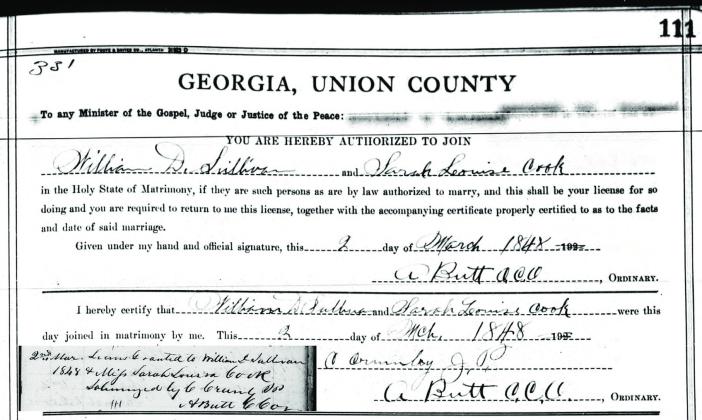 111
MANUFACTURED BY FOOTE & DAVIES CO., ATLANTA
331
GEORGIA, UNION COUNTY
To any Minister of the Gospel, Judge or Justice of the Peace:
YOU ARE HEREBY AUTHORIZED TO JOIN
William D. Sullivan and Sarah Leouise Cook
in the Holy State of Matrimony, if they are such persons as are by law authorized to marry, and this shall be your license for so
doing and you are required to return to me this license, together with the accompanying certificate properly certified to as to the facts
and date of said marriage.
Given under my hand and official signature, this 2 day of March 1848 192
A Butt C.C.O. , ORDINARY.
I hereby certify that William D Sullivan and Sarah Leouise Cook were this
day joined in matrimony by me. This 2 day of Mch. 1848 192
J. P.
2nd Mar. Granted to William D Sullivan
1848 & Miss Sarah Louisa Cook
by C
A Butt C.C.O.
111 A Butt